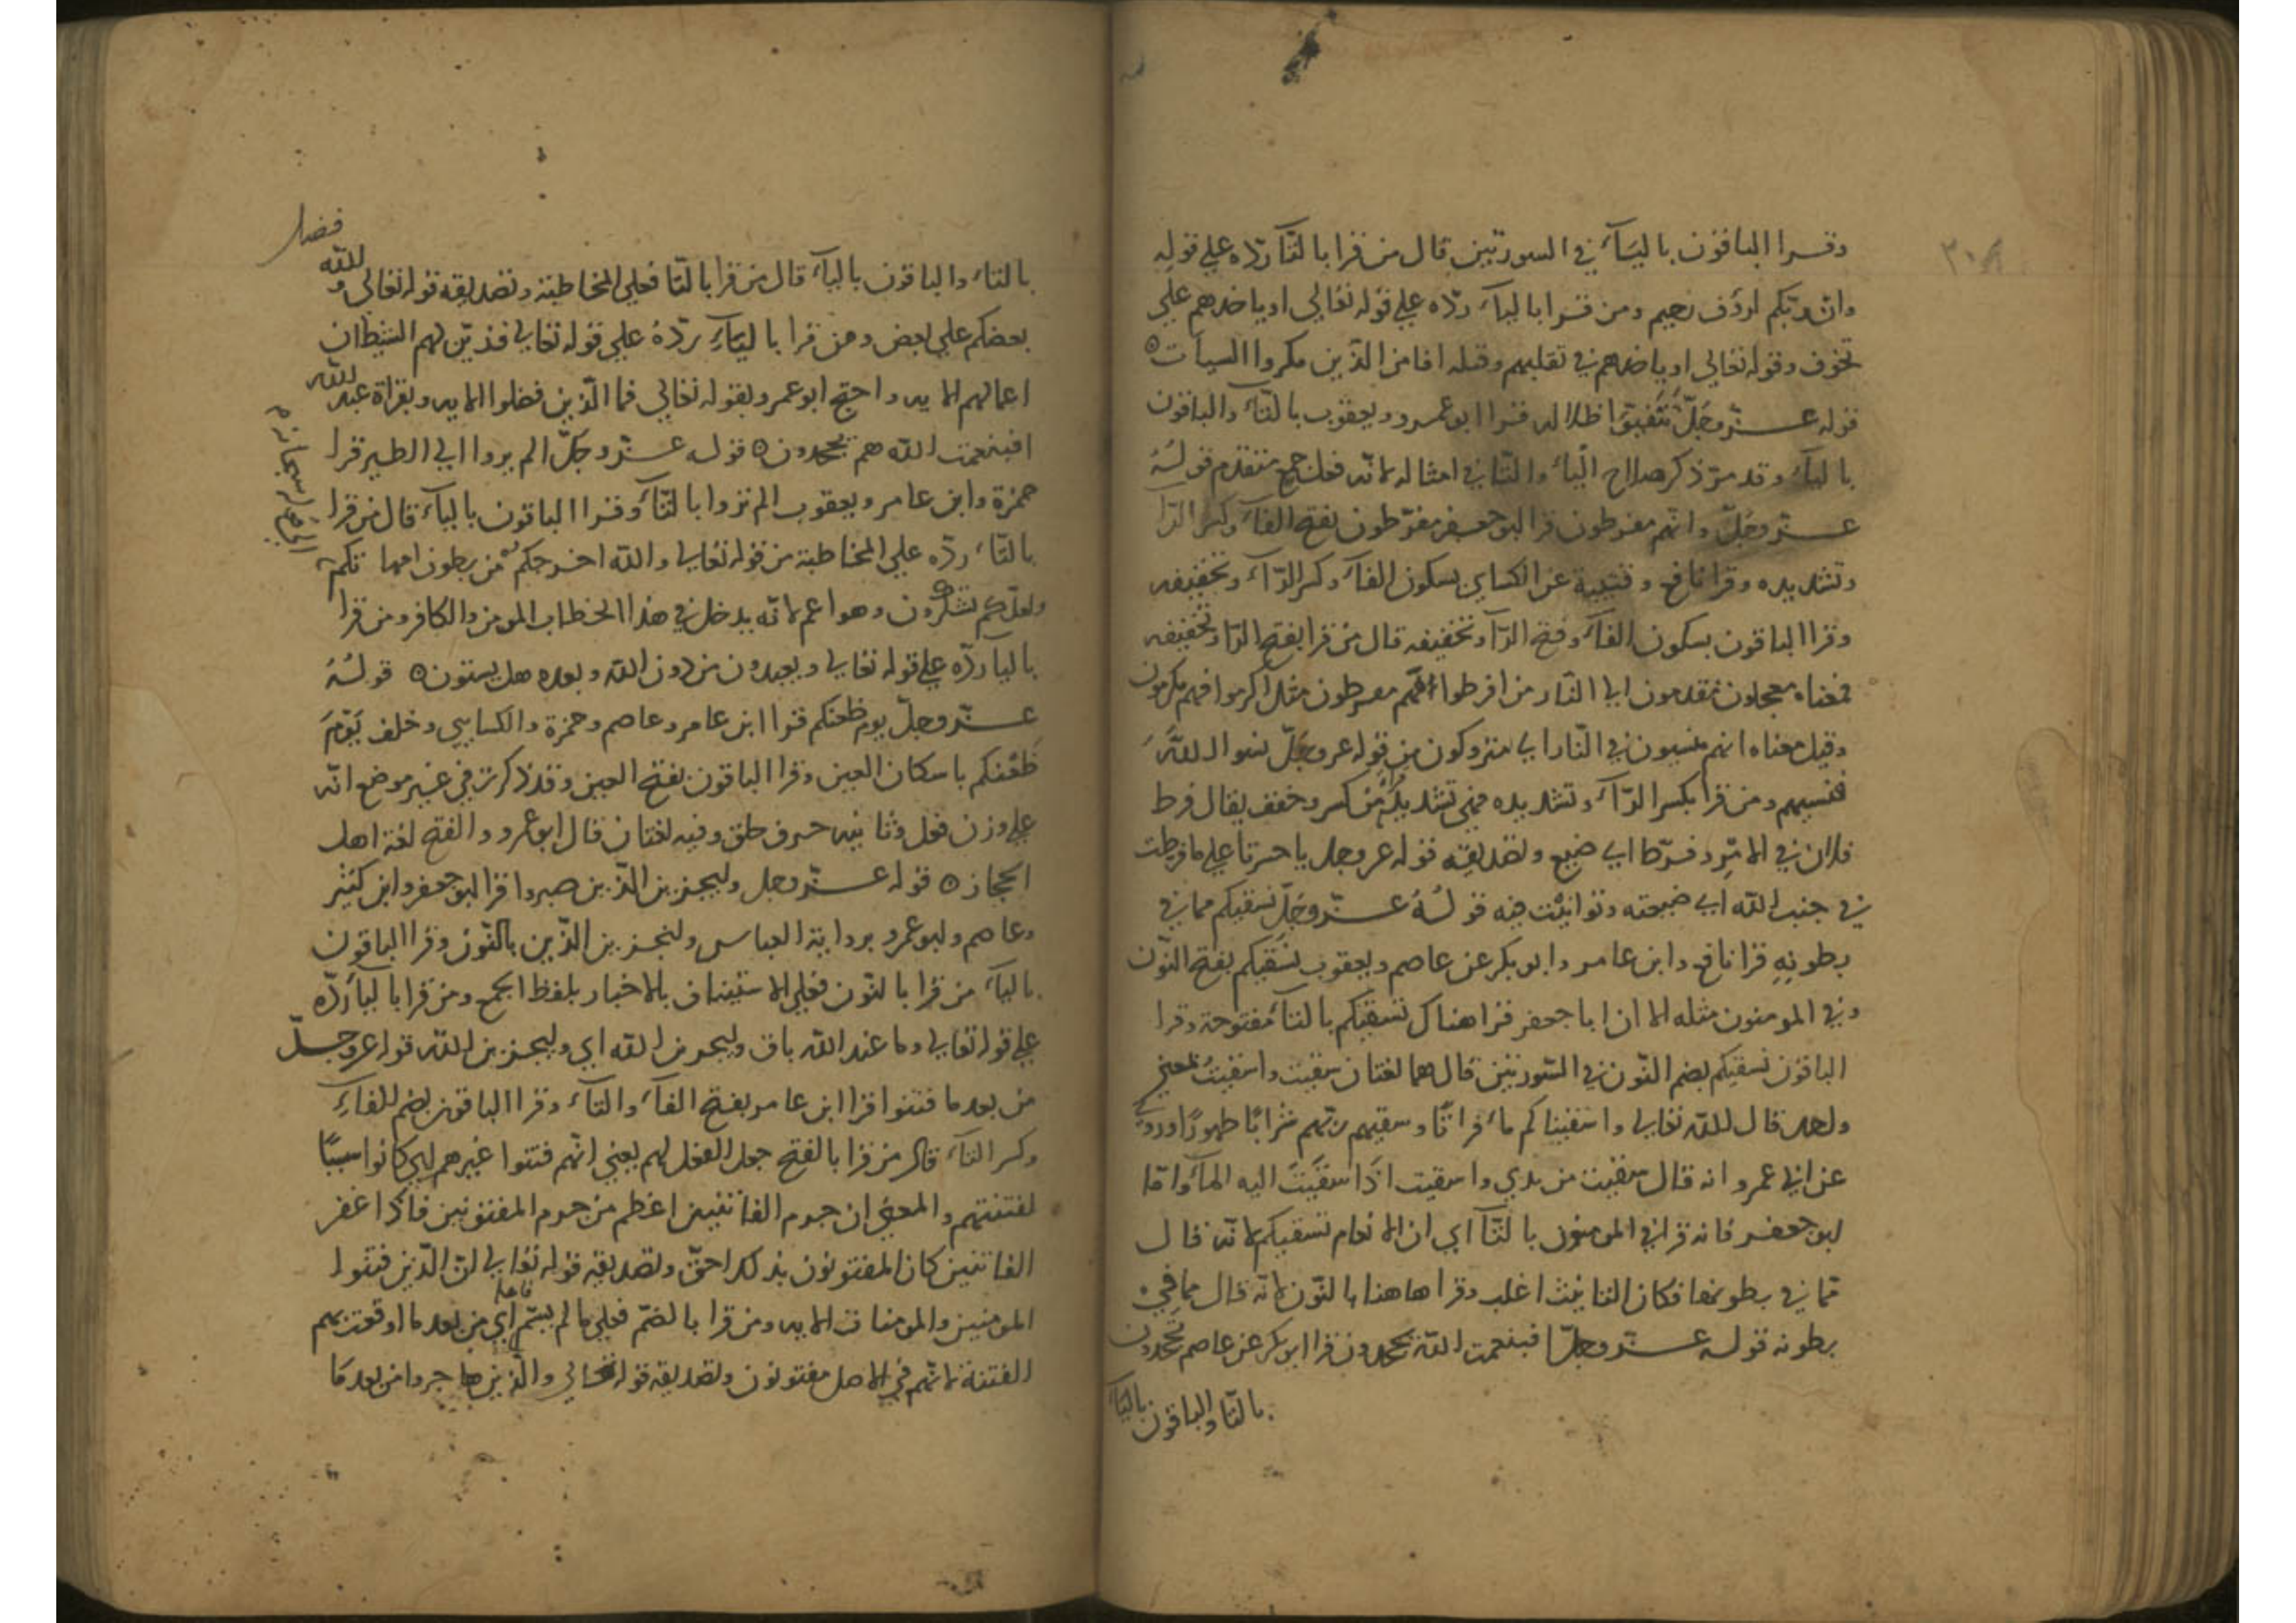 ٢٠٨
وقرا الباقون باليآء في السورتين قال من قرا بالتآ ردّه علي قوله
وان ربّكم لرؤف رحيم ومن قرا باليآء ردّه علي قوله تعالي او ياخذهم علي
تخوف وقوله تعالي او ياخذهم في تقلبهم وقبله افامن الذين مكروا السيات ٥
قوله عزّ وجَلّ تتفيّؤا ظلاله قرا ابو عمرو ويعقوب بالتّآء والباقون
باليآء وقد مرّ ذكر صلاح اليآء والتّا في امثاله لانه فعل جمع متقدم قولهُ
عزّ وجَلّ وانهم مفرطون قرا ابو جعفر مفرّطون بفتح الفآء وكسر الرّا
وتشديده وقرا نافع وقتيبة عن الكساي بسكون الفآء وكسر الرّآء وتخفيفه
وقرا الباقون بسكون الفآء وفتح الرّآ وتخفيفه قال من قرا بفتح الرّا وتخفيفه
فمعناه معجلون مقدمون الي النّار من افرطوا فهم مفرطون مثل اكرموا فهم مكرمون
وقيل معناه انهم منسيون في النّار اي متروكون من قوله عز وجَلّ نسوا اللّهَ
فنسيهم ومن قرا بكسر الرّآء وتشديده فهي تشديد من كسر وخفف يقال فرط
فلان في الامر وفرّط اي ضيع وتصديقه قوله عز وجل يا حسرتا علي ما فرطت
في جنب اللّه اي ضيعته وتوانيت فيه قولهُ عزّ وجَلّ نسقيكم مما في
بطونهِ قرا نافع وابن عامر وابو بكر عن عاصم ويعقوب نَسقيكم بفتح النّون
وفي المومنون مثله الا ان ابا جعفر قرا هناك تسقيكم بالتآء مفتوحة وقرا
الباقون نسقيكم بضم النّون في السّورتين قال هما لغتان سقيت واسقيت بمعني
واحد قال اللّه تعالي واسقيناكم مآء فراتًا وسقيهم ربّهم شرابًا طهورًا وروي
عن ابي عمرو انه قال سقيت من يدي واسقيت اذا سقيَت اليه المآء وامّا
ابو جعفر فانه قرا في المومنون بالتّآ اي ان الانعام تسقيكم لانّه قال
ممّا في بطونها فكان التانيث اغلب وقرا هاهنا بالنّون لانّه قال مما في
بطونه قوله عزّ وجلّ افبنعمت اللّه يجحدون قرا ابو بكر عن عاصم تجحدون
بالتّا والباقون باليآء
بالتآء والباقون باليآء قال من قرا بالتّا فعلي المخاطبة وتصديقه قوله تعالي واللّه فضل
بعضكم علي بعض ومن قرا باليَآءِ ردّهُ علي قوله تعالي فزيّن لهم الشيطان
اعمالهم الايه واحتج ابو عمرو بقوله تعالي فما الّذين فضلوا الايه وبقراة عبد اللّه
افبنعمت اللّه هم يجحدون ٥ قوله عزّ وجَلّ الم يروا الي الطير قرا
حمزة وابن عامر ويعقوب الم تروا بالتّآء وقرا الباقون باليآء قال من قرا
بالتّاء ردّه علي المخاطبة من قوله تعالي واللّه اخرجكم من بطون امهاتكم
ولعلّكم تشكرون وهو اعم لانّه يدخل في هذا الخطاب المومن والكافر ومن قرا
باليا ردّه علي قوله تعالي ويعبدون من دون اللّه وبعده هل يستون ٥ قولهُ
عزّ وجلّ يوم ظعنكم قرا ابن عامر وعاصم وحمزة والكسايي وخلف يَوْمَ
ظَعْنكم باسكان العين وقرا الباقون بفتح العين وقد ذكرت في غير موضع انّه
علي وزن فعل وثانيه حرف حلق وفيه لغتان قال ابو عمرو والفتح لغة اهل
الحجاز ٥ قوله عزّ وجل وليجزين الذّين صبروا قرا ابو جعفر وابن كثير
وعاصم وابو عمرو برواية العباس ولنجزين الذّين بالنّون وقرا الباقون
باليآء من قرا بالنّون فعلي الاستيناف بالاخبار بلفظ الجمع ومن قرا باليآء ردّه
علي قوله تعالي وما عند اللّه باق وليجزين اللّه اي وليجزين اللّه قوله عز وجلّ
من بعد ما فتنوا قرا ابن عامر بفتح الفآء والتآء وقرا الباقون بضم الفآءِ
وكسر التآء قال من قرا بالفتح جعل الفعل لهم يعني انّهم فتنوا غيرهم اي كانوا سببًا
لفتنتهم والمعني ان جرم الفاتنين اعظم من جرم المفتونين فاذا غفر
الفاتنين كان المفتونون بذلك احقّ وتصديقه قوله تعالي انّ الّذين فتنوا
المومنين والمومنات الايه ومن قرا بالضمّ فعلي ما لم يسّم فاعله اي من بعد ما اوقعت بهم
الفتنة لانّهم في الاصل مفتونون وتصديقه قوله تعالي والّذين هاجروا من بعد ما